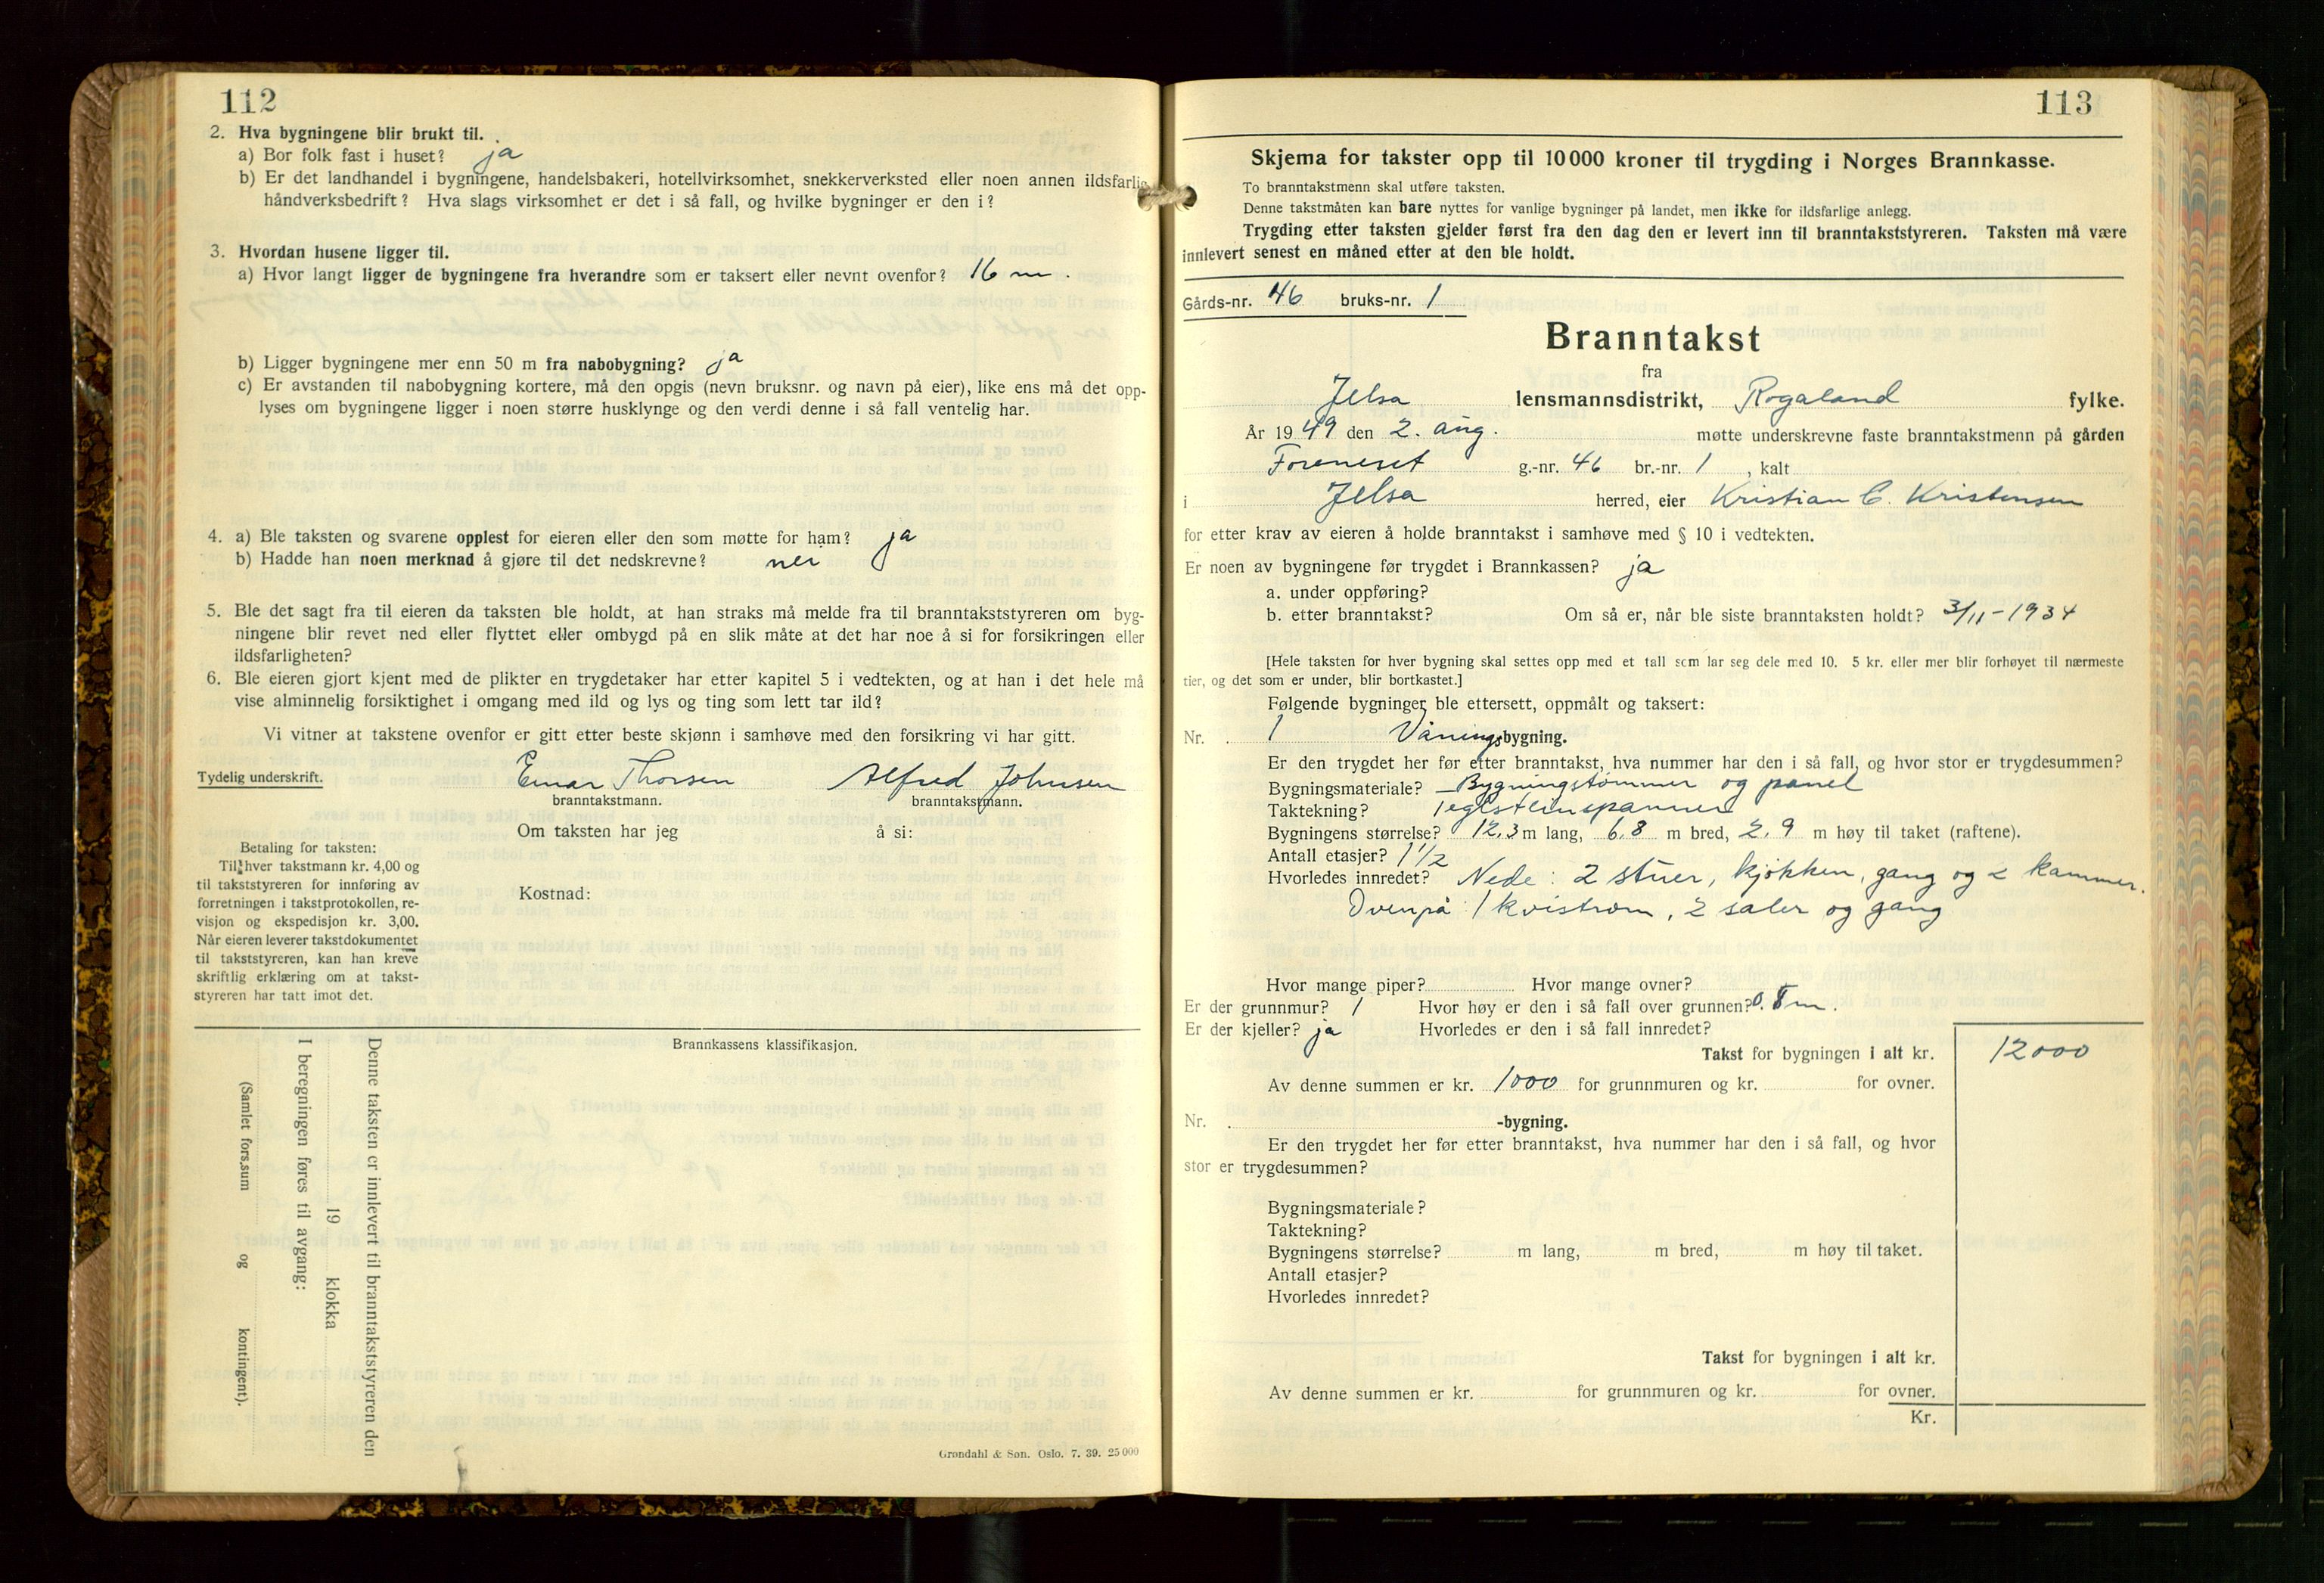 112
2. Hva bygningene blir brukt til.
a) Bor folk fast i huset? ja
b) Er det landhandel i bygningene, handelsbakeri, hotellvirksomhet, snekkerverksted eller noen annen ildsfarlig
håndverksbedrift? Hva slags virksomhet er det i så fall, og hvilke bygninger er den i?
3. Hvordan husene ligger til.
a) Hvor langt ligger de bygningene fra hverandre som er taksert eller nevnt ovenfor? 16 m.
b) Ligger bygningene mer enn 50 m fra nabobygning? ja
c) Er avstanden til nabobygning kortere, må den opgis (nevn bruksnr. og navn på eier), like ens må det opp-
lyses om bygningene ligger i noen større husklynge og den verdi denne i så fall ventelig har.
4. a) Ble taksten og svarene opplest for eieren eller den som møtte for ham? ja
b) Hadde han noen merknad å gjøre til det nedskrevne? nei
5. Ble det sagt fra til eieren da taksten ble holdt, at han straks må melde fra til branntakststyreren om byg-
ningene blir revet ned eller flyttet eller ombygd på en slik måte at det har noe å si for forsikringen eller
ildsfarligheten?
6. Ble eieren gjort kjent med de plikter en trygdetaker har etter kapitel 5 i vedtekten, og at han i det hele må
vise alminnelig forsiktighet i omgang med ild og lys og ting som lett tar ild?
Vi vitner at takstene ovenfor er gitt etter beste skjønn i samhøve med den forsikring vi har gitt.
Tydelig underskrift. Einar Thorsen Alfred Johnsen
branntakstmann. branntakstmann.
Om taksten har jeg å si:
Betaling for taksten:
Til hver takstmann kr. 4,00 og
til takststyreren for innføring av
forretningen i takstprotokollen, re-
visjon og ekspedisjon kr. 3,00.
Når eieren leverer takstdokumentet
til takststyreren, kan han kreve
skriftlig erklæring om at takst-
styreren har tatt imot det.
Kostnad:
Brannkassens klassifikasjon.
Denne taksten er innlevert til branntakststyreren den
19 klokka
I beregningen føres til avgang:
(Samlet fors.sum og kontingent).
Grøndahl & Søn. Oslo. 7. 39. 25 000
113
Skjema for takster opp til 10000 kroner til trygding i Norges Brannkasse.
To branntakstmenn skal utføre taksten.
Denne takstmåten kan bare nyttes for vanlige bygninger på landet, men ikke for ildsfarlige anlegg.
Trygding etter taksten gjelder først fra den dag den er levert inn til branntakststyreren. Taksten må være
innlevert senest en måned etter at den ble holdt.
Gårds-nr. 46 bruks-nr. 1
Branntakst
fra
Jelsa lensmannsdistrikt, Rogaland fylke.
År 1949 den 2. aug. møtte underskrevne faste branntakstmenn på gården
Foreneset g.-nr. 46 br.-nr. 1, kalt
i Jelsa herred, eier Kristian C. Kristensen
for etter krav av eieren å holde branntakst i samhøve med § 10 i vedtekten.
Er noen av bygningene før trygdet i Brannkassen? ja
a. under oppføring?
b. etter branntakst? Om så er, når ble siste branntaksten holdt? 3/11-1934
[Hele taksten for hver bygning skal settes opp med et tall som lar seg dele med 10. 5 kr. eller mer blir forhøyet til nærmeste
tier, og det som er under, blir bortkastet.]
Følgende bygninger ble ettersett, oppmålt og taksert:
Nr. 1 Våningsbygning.
Er den trygdet her før etter branntakst, hva nummer har den i så fall, og hvor stor er trygdesummen?
Bygningsmateriale? Bygningstømmer og panel
Taktekning? Teglsteinspanner
Bygningens størrelse? 12,3 m lang, 6,8 m bred, 2,9 m høy til taket (raftene).
Antall etasjer? 1 1/2
Hvorledes innredet? Nede: 2 stuer, kjøkken, gang og 2 kammer.
Ovenpå: 1 kvistrom, 2 saler og gang
Hvor mange piper? Hvor mange ovner?
Er der grunnmur? 1 Hvor høy er den i så fall over grunnen? 0.8 m.
Er der kjeller? ja Hvorledes er den i så fall innredet?
Takst for bygningen i alt kr. 12000
Av denne summen er kr. 1000 for grunnmuren og kr. for ovner.
Nr. -bygning.
Er den trygdet her før etter branntakst, hva nummer har den i så fall, og hvor
stor er trygdesummen?
Bygningsmateriale?
Taktekning?
Bygningens størrelse? m lang, m bred, m høy til taket.
Antall etasjer?
Hvorledes innredet?
Takst for bygningen i alt kr.
Av denne summen er kr. for grunnmuren og kr. for ovner.
Kr.